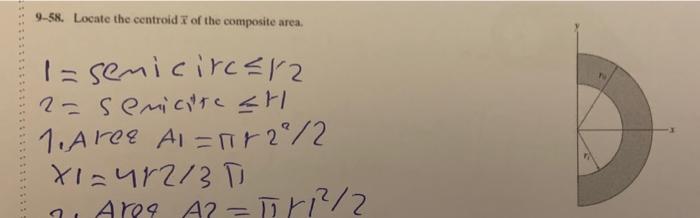 9–58. Locate the centroid x̄ of the composite area.
1 = semicirc ≤ r2
2 = semicirc ≤ r1
1. Area A1 = πr2²/2
x1 = 4r2/3π
2. Area A2 = πr1²/2
y
r₀
x
rᵢ